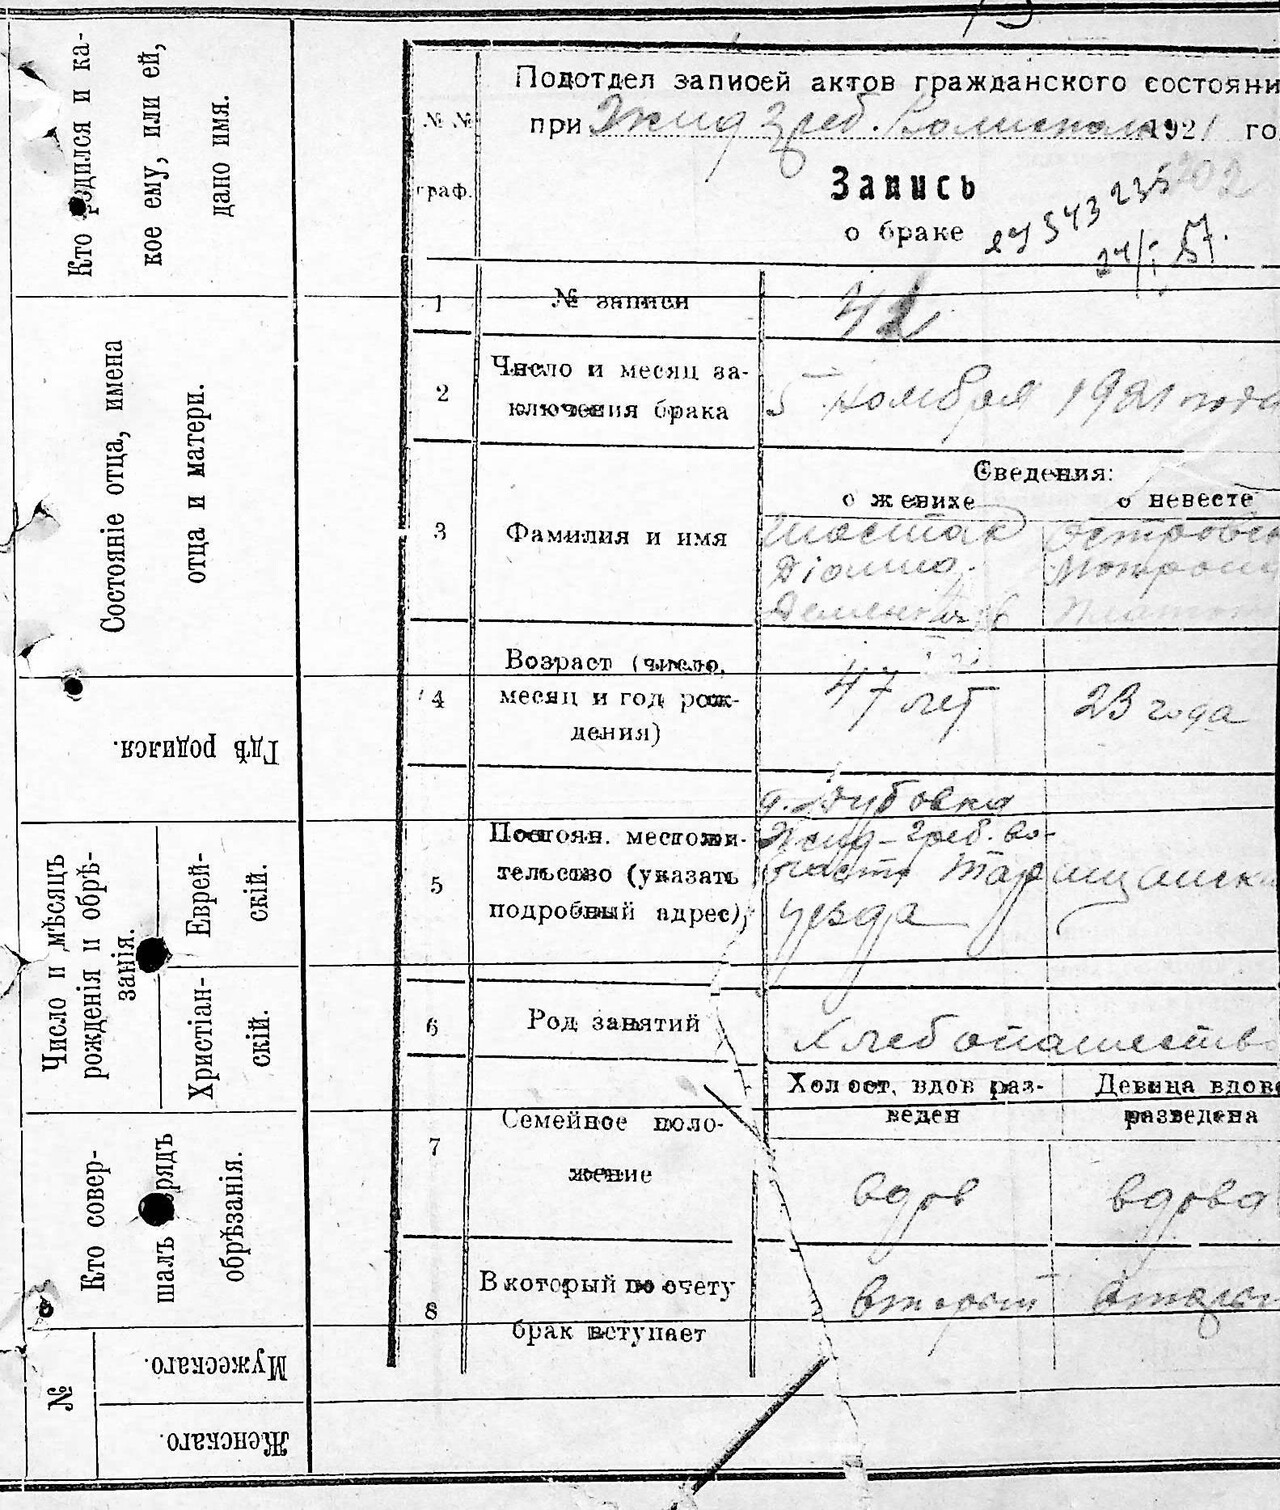 Кто родился и ка-
кое ему, или ей,
дано имя.
Состояніе отца, имена
отца и матери.
Гдѣ родился.
Число и мѣсяцъ
рожденія и обрѣ-
занія.
Еврей-
скій.
Христіан-
скій.
Кто совер-
шалъ обрядъ
обрѣзанія.
№
Мужескаго.
Женскаго.
Подотдел записей актов гражданского состояни
при Жид Греб. 1921 го
№ №
граф.
Запись
о браке
202
27543235
24/I 57.
1
№ записи
42
2
Число и месяц за-
ключения брака
5 ноября 1921 года
Сведения:
о женихе
о невесте
3
Фамилия и имя
Шостак
Островск
Діомид
Мотрона
4
Возраст (число,
месяц и год рож-
дения)
47 лет
23 года
5
Постоян. местожи-
тельство (указать
подробный адрес)
д. Дубовка
Жид-Греб. во-
лости Таращанск
уезда
6
Род занятий
Хлебопашество
7
Семейное поло-
жение
Холост, вдов раз-
веден
Девица вдов
разведена
вдов
вдова
8
В который по счету
брак вступает
второй
второй